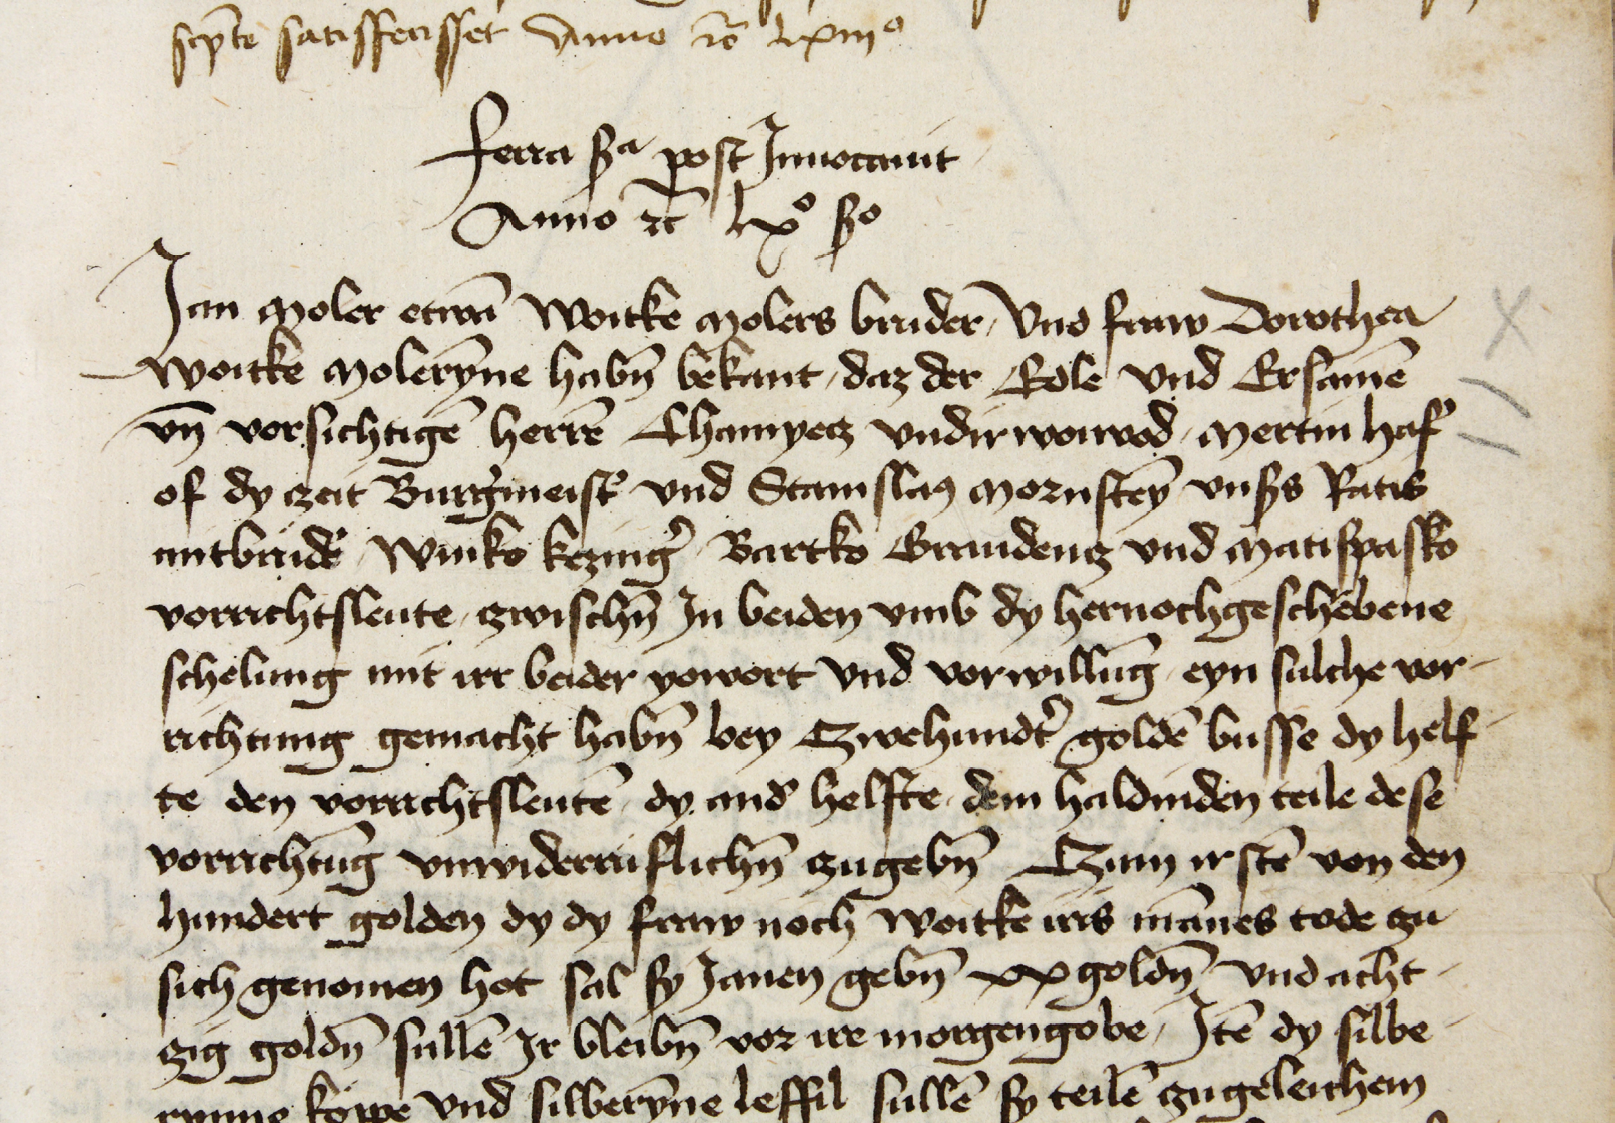 satisfecisset Anno lxiiio
feria post Inuocauit
Anno lxo
Jan Moler etwan Woitke Molers bruder Vnd fraw Dorothea
Woitke Molerÿne habn̄ bekant daz der Edle vnd Ersamē
vn̄ vorsichtigē herrē Chamyecz vndirwoiwod Mertin
of dy czeit Burgmeist vnd Stanislaꝰ Mornstey̅ Ratis
mitbrud Winko Bartko Graudencz vnd Matispasko
vorrichtsleute czwischn̄ Jn beiden vmb dy hernochgeschebene
schelung mit irr beider yowort Vnd vorwillūg eyn sulche vor-
richtung gemacht habn̄ bey Czwehundt goldē busse dy helf-
te den vorrichtsleutē dy and helfte dem haldinden teile dese
vorrichtūg vnwiderruflichn̄ czugebn̄ Czum irstē von den
hundert golden dy dy fraw noch Woitke iris mānes tode czu
sich genomen hot sal sy Janen gebn̄ xx goldn̄ vnd acht-
czig goldn̄ sullē Jr bleibn̄ vor ire morgengobe Jtē dy silbe-
rynne köppe vnd silberÿne leffil sullē sy teilē czugeleichem